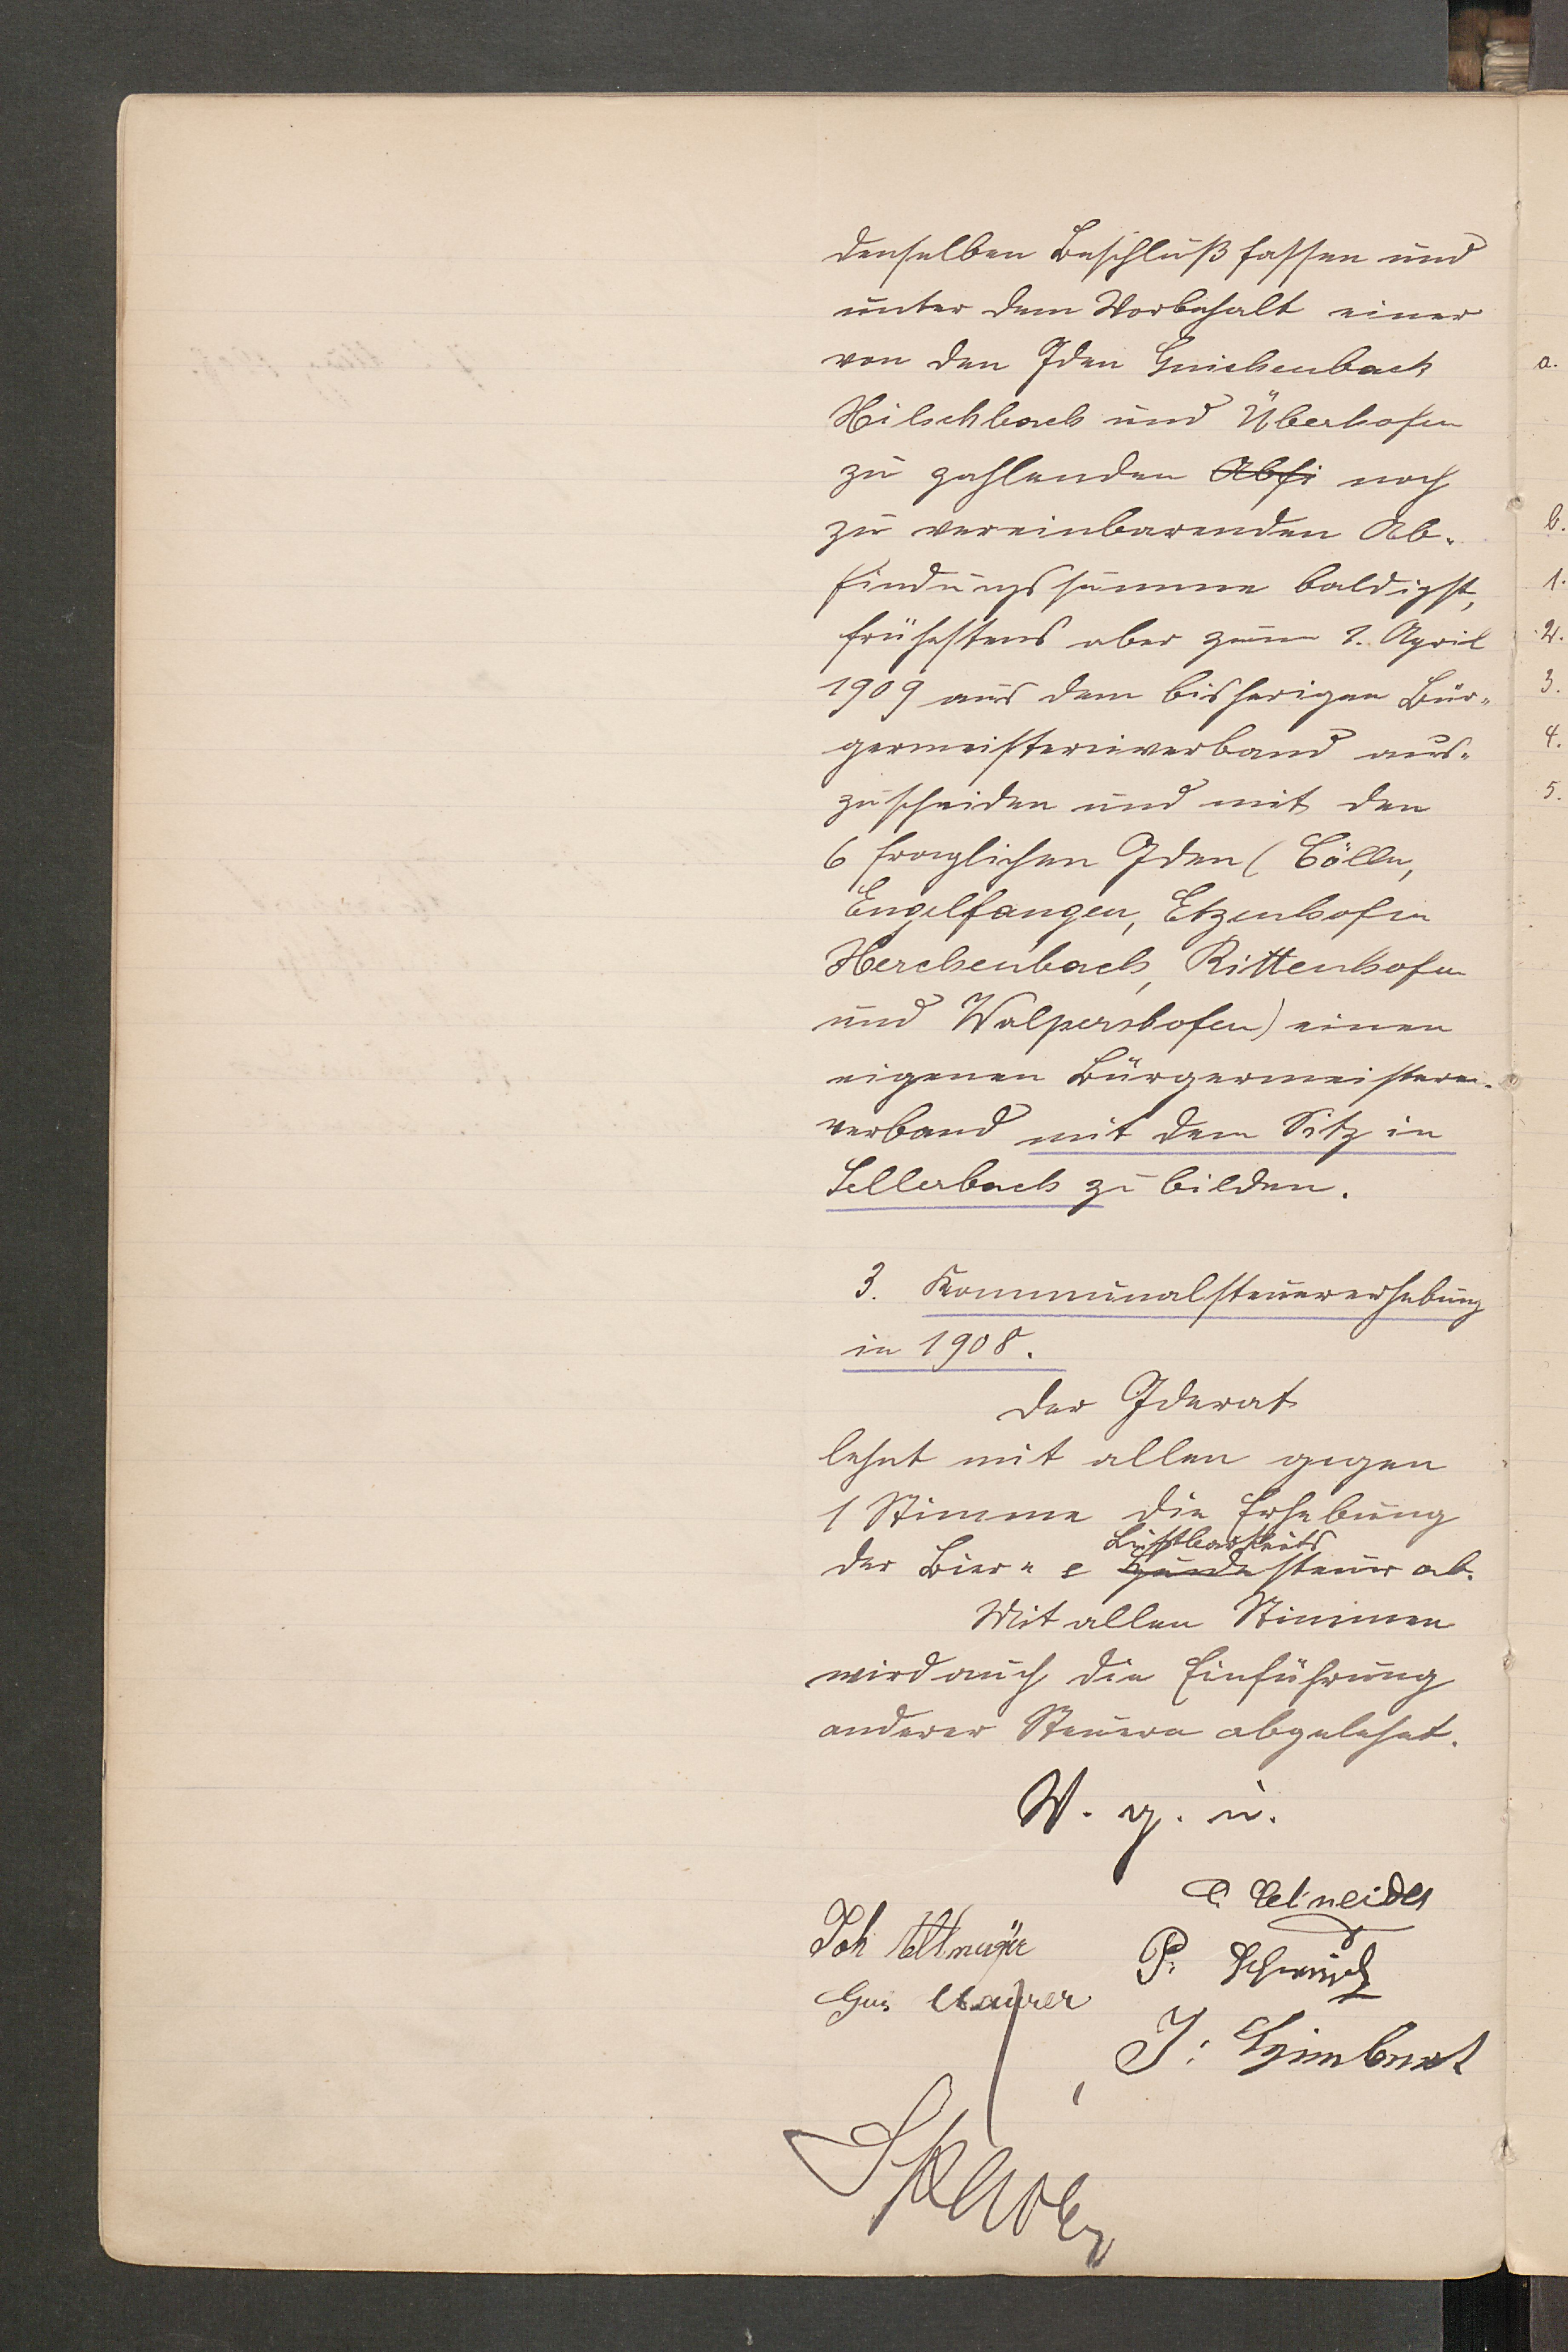 denselben Beschluß fassen und
unter dem Vorbehalt einer
von den Gden Guichenbach
Hilschbach und Überhofen
zu zahlenden Abfi noch
zu vereinbarenden Ab-
findungssumme baldigst,
frühestens aber zum 1. April
1909 aus dem bisherigen Bür-
germeistereiverband aus-
zuscheiden und mit den
6 fraglichen Gden (Cölln,
Engelfangen, Etzenhofen
Herchenbach, Rittenhofen
und Walpershofen) einen
eigenen Bürgermeisterei-
verband mit dem Sitz in
Sellerbach zu bilden.
3. Kommunalsteuererhebung
in 1908.
Der Gderat
lehnt mit allen gegen
1 Stimme die Erhebung
Lustbarkeits
der Bier- & Hundesteuer ab.
Mit allen Stimmen
wird auch die Einführung
anderer Steuern abgelehnt.
V. g. u.
Schneider
Joh Altmeyer
P. Schmidt
Maurer
J:
a.
b.
1.
2.
3.
4.
5.